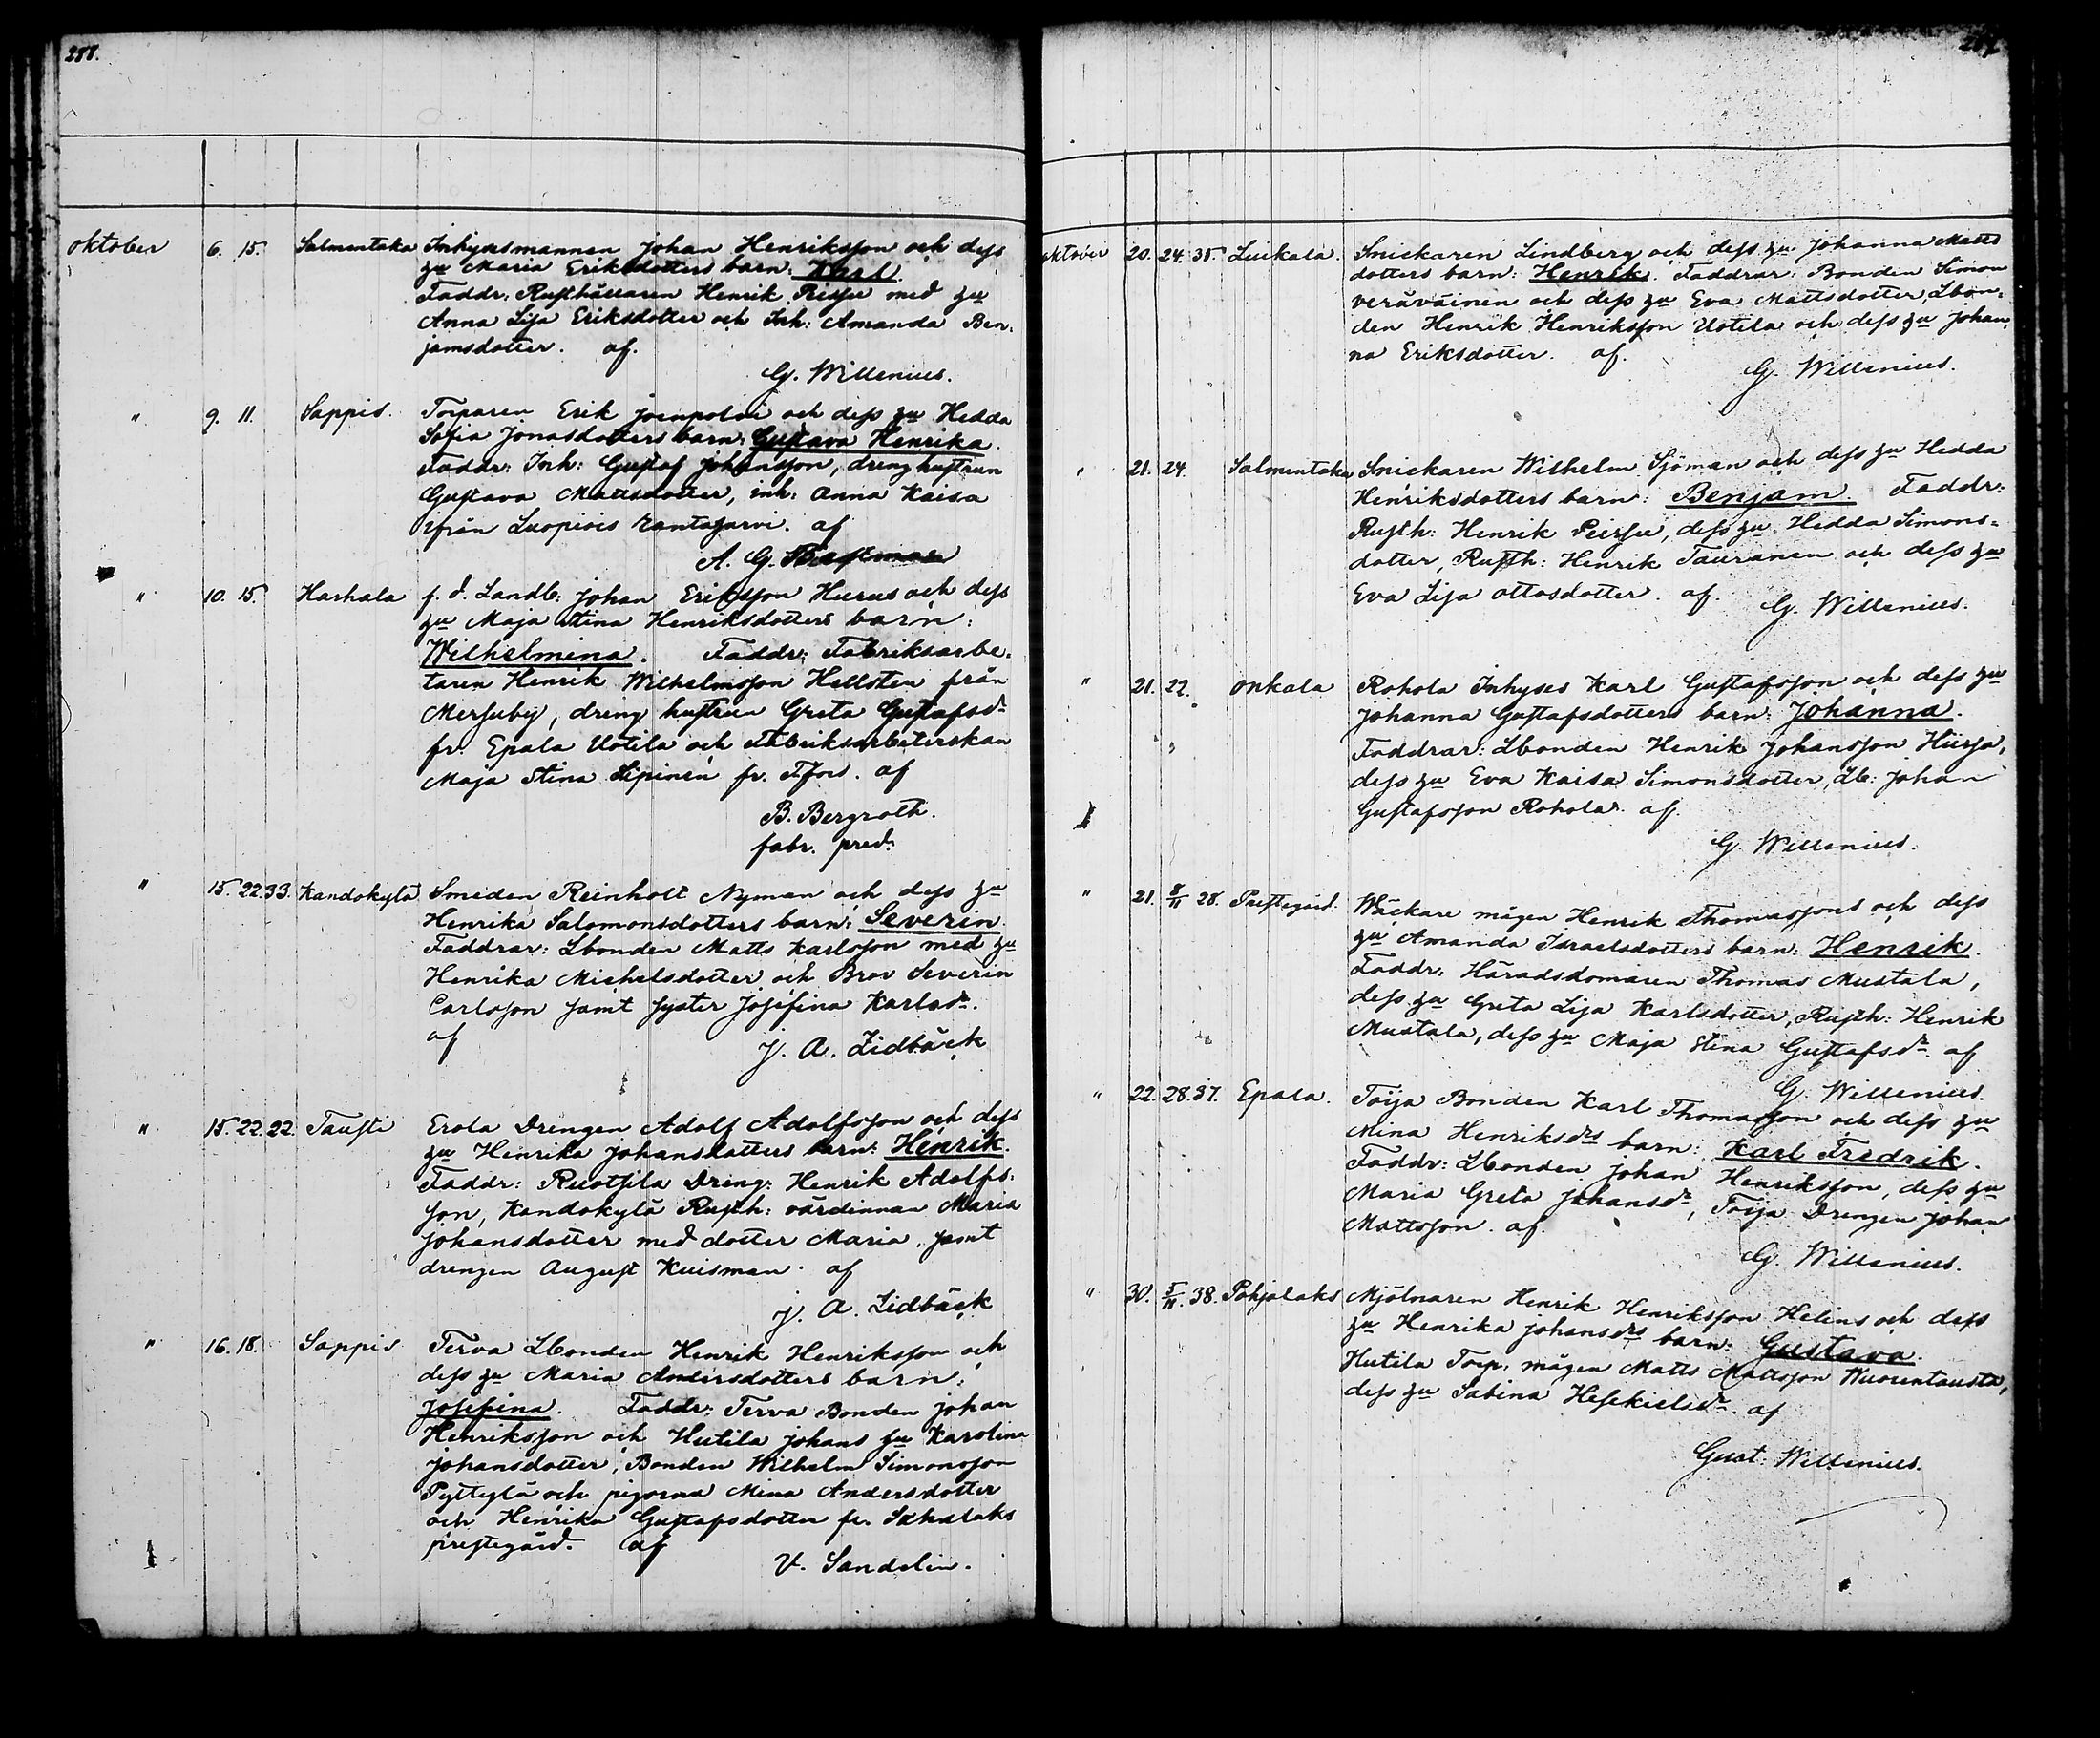 288.
oktober 6. 15. Salmentaka Inhysesmannen Johan Henriksson och dess
hu Maria Eriksdotters barn: Karl.
Faddr: Rusthållaren Henrik Peisse med hu
Anna Lisa Eriksdotter och Inh: Amanda Ben-
jamsdotter. af.
G. Willenius.
" 9. 11. Sappis. Torparen Erik Joenpolvi och dess hu Hedda
Sofia Jonasdotters barn: Gustava Henrika.
Faddr: Inh: Gustaf Johansson, dreng hustrun
Gustava Mattsdotter, inh: Anna Kaisa
från Luopiois Rantajarvi. af
A. G.
" 10. 15. Harhala f. d. Landb: Johan Eriksson Hurus och dess
hu Maja Stina Henriksdotters barn:
Wilhelmina. Faddr: Fabriksarbe-
taren Henrik Wilhelmsson Hellsten från
Mersuby, dreng hustrun Greta Gustafsdr
fr. Epala Uotila och Fabriksarbeterskan
Maja Stina Sipinen fr. Tfors. af
B. Bergroth.
fabr. pred.
" 15. 22. 33. Kandokylä Smeden Reinholt Nyman och dess hu
Henrika Salomonsdotters barn: Severin
Faddrar: Lbonden Matts Karlsson med hu
Henrika Michelsdotter och Bror Severin
Carlsson samt syster Josefina Karlsdr.
af J. A. Lidbäck
" 15. 22. 22. Tausti Erola Drengen Adolf Adolfsson och dess
hu Henrika Johansdotters barn: Henrik.
Faddr: Ruotsila Dreng: Henrik Adolfs-
son, Kandokylä Rusth: värdinnan Maria
Johansdotter med dotter Maria, samt
drengen August Kuisman. af
J. A. Lidbäck
" 16. 18. Sappis Terva Lbonden Henrik Henriksson och
dess hu Maria Andersdotters barn:
Josefina. Faddr: Terva Bonden Johan
Henriksson och Hutila Johans hu Karolina
Johansdotter, Bonden Wilhelm Simonsson
Pyttylä och pigorna Mina Andersdotter
och Henrika Gustafsdotter fr. Sahalaks
prestegård. af
V. Sandelin.
oktober 20. 24. 35. Luikala. Snickaren Lindberg och dess hu Johanna Matts
dotters barn: Henrik. Faddrar: Bonden Simon
veräväinen och dess hu Eva Mattsdotter Lbon-
den Henrik Henriksson Uotila och dess hu Johan-
na Eriksdotter. af.
G. Willenius.
" 21. 24. Salmentaka Snickaren Wilhelm Sjöman och dess hu Hedda
Henriksdotters barn: Benjam. Faddr:
Rusth: Henrik Peisse, dess hu Hedda Simons-
dotter, Rusth: Henrik Tauranen och dess hu
Eva Lisa Ottosdotter. af.
G. Willenius.
" 21. 22. Onkala Rohola Inhyses Karl Gustafsson och dess hu
Johanna Gustafsdotters barn: Johanna.
Faddrar: Lbonden Henrik Johansson Hiirsa,
dess hu Eva Kaisa Simonsdotter, Lb: Johan
Gustafsson Rohola. af.
G. Willenius.
" 21. 8/11 28. Prestegård. Wäckare mågen Henrik Thomassons och dess
hu Amanda Israelsdotters barn: Henrik.
Faddr: Häradsdomaren Thomas Mustala,
dess hu Greta Lisa Karlsdotter, Rusth: Henrik
Mustala, dess hu Maja Stina Gustafsdr. af
G. Willenius.
" 22. 28. 37. Epala. Toija Bonden Karl Thomasson och dess hu
Mina Henriksdrs barn: Karl Fredrik.
Faddr: Lbonden Johan Henriksson, dess hu
Maria Greta Johansdr, Toija Drengen Johan
Mattsson. af.
G. Willenius.
" 30. 5/11. 38. Pohjalaks Mjölnaren Henrik Henriksson Helins och dess
hu Henrika Johansdrs barn: Gustava.
Hutila Torp: mågen Matts Mattsson Wuorentausta,
dess hu Sabina Hesekielsdr. af
Gust. Willenius.